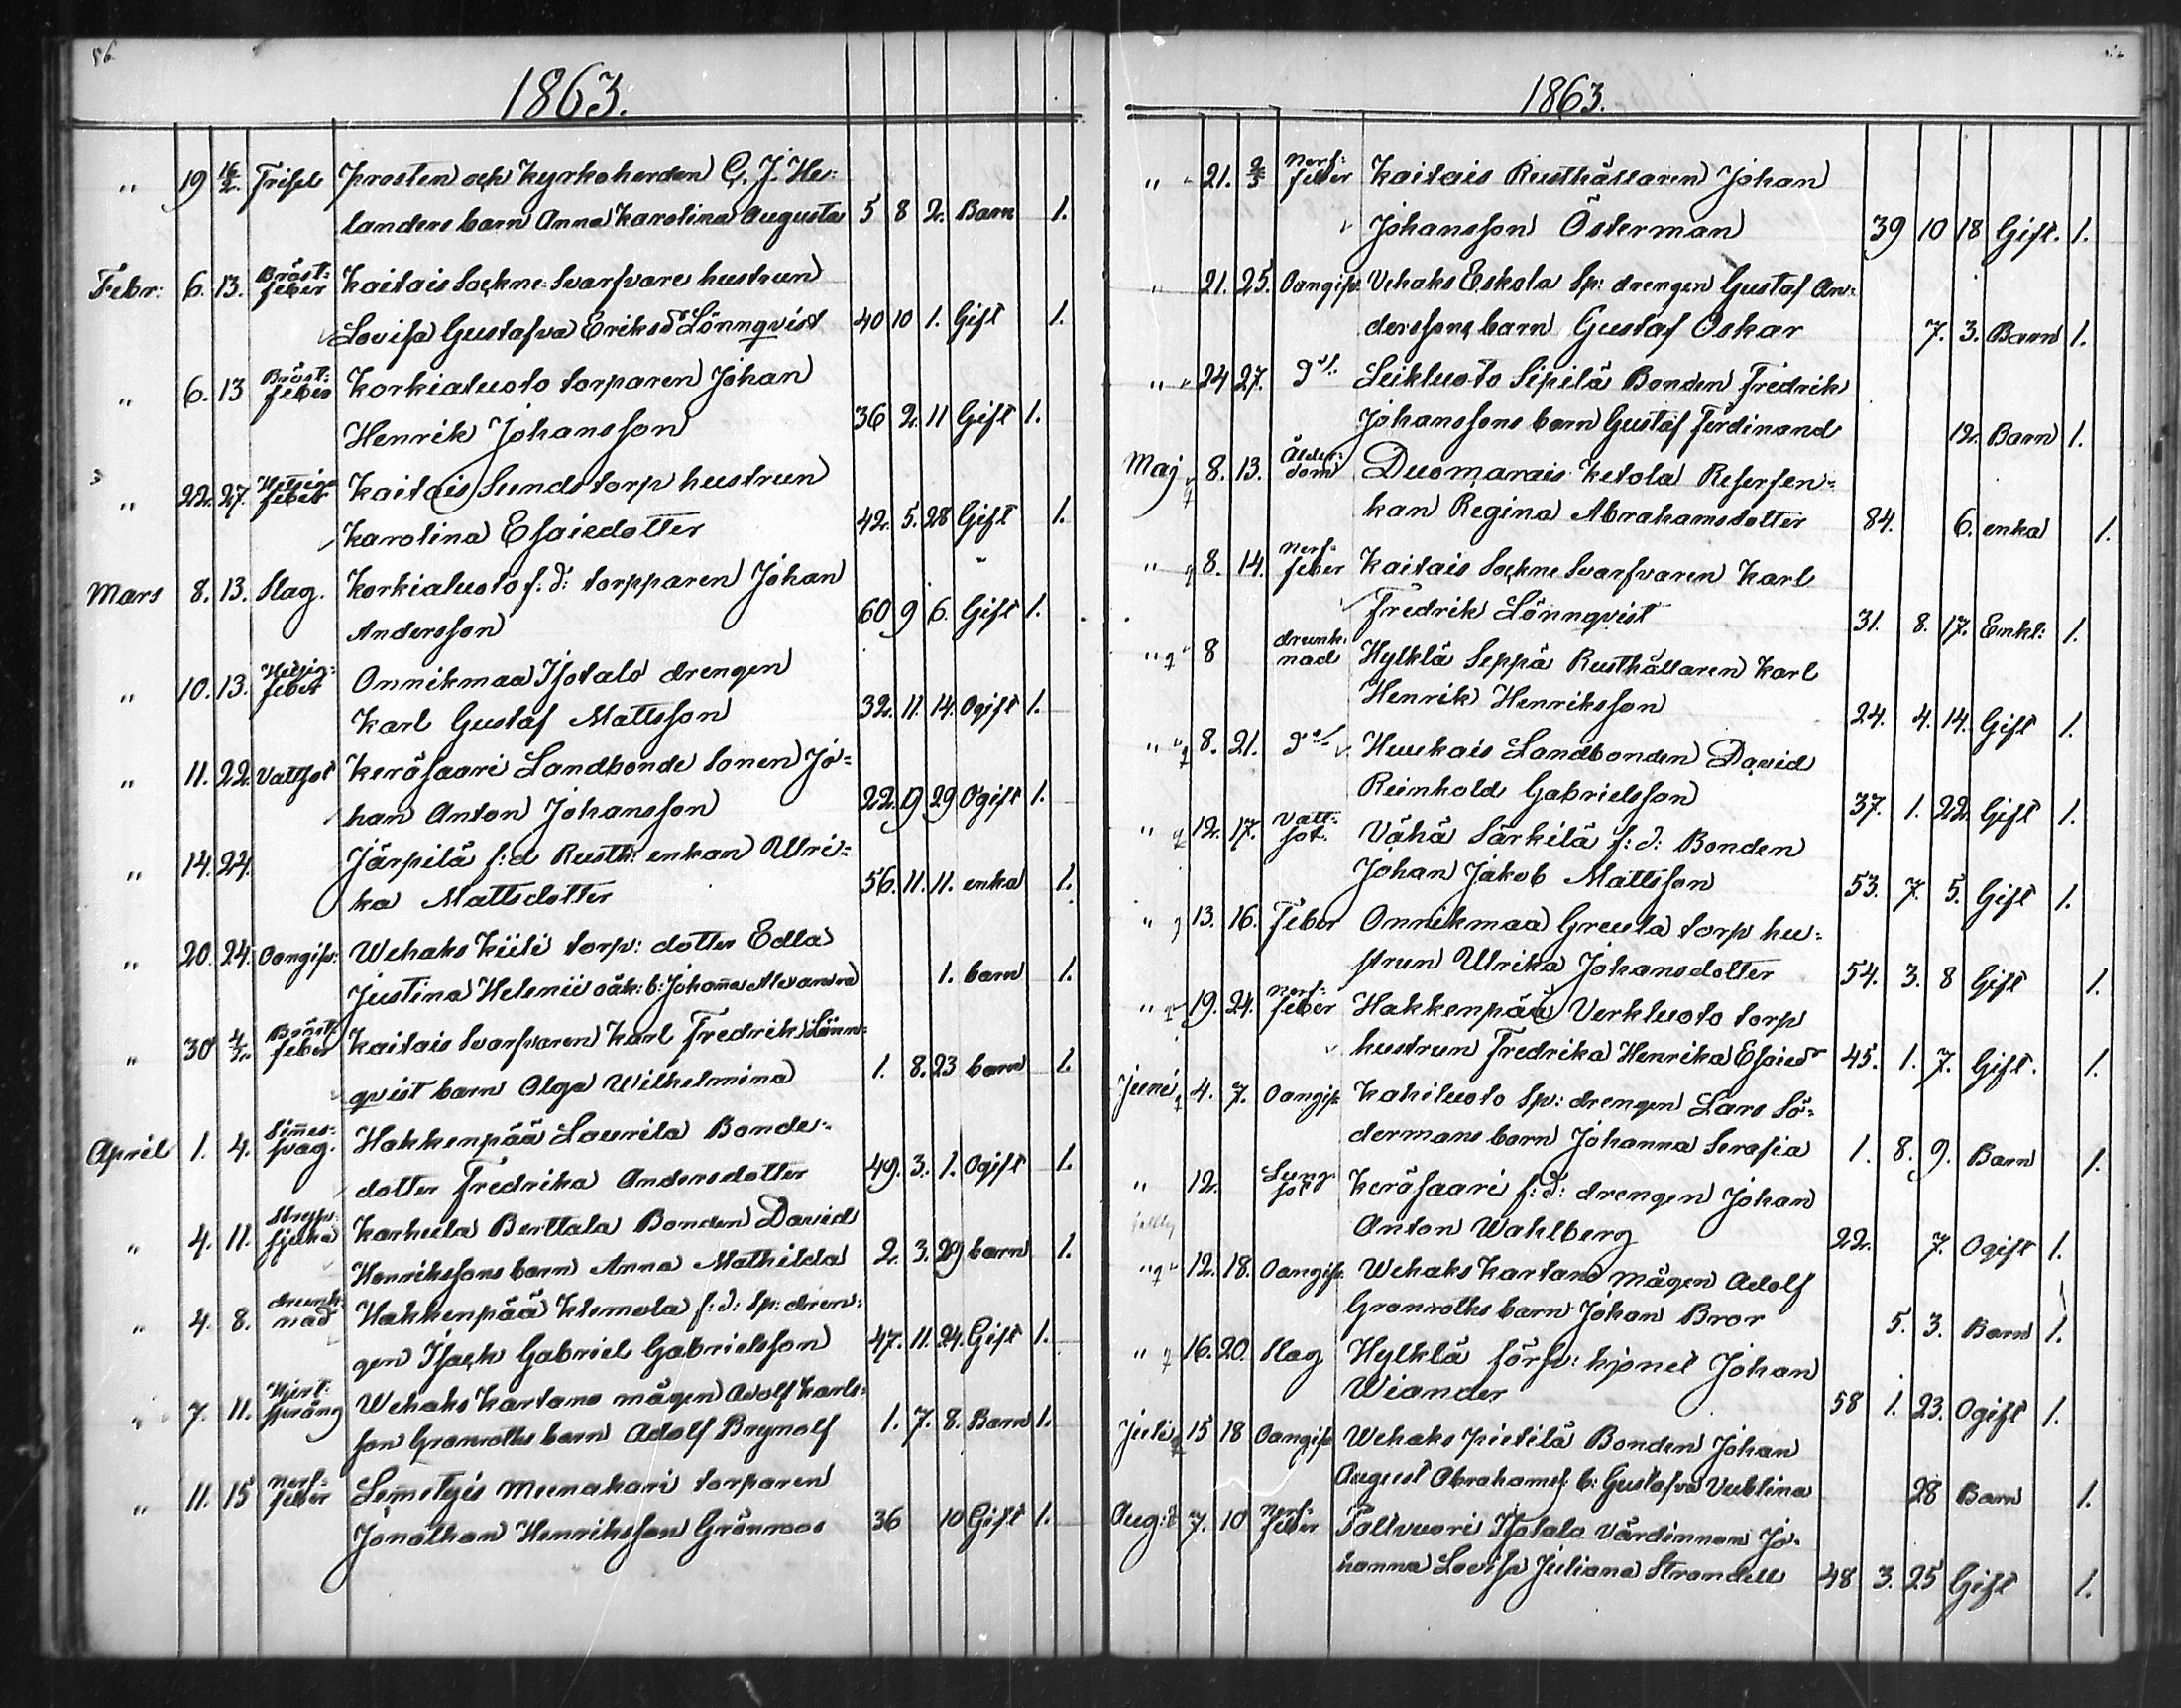 56.
1863.
" 19 16/2. Frisel Prosten och Kyrkoherden C. J. He=
landers barn Anna Karolina Augusta 5 8 2. Barn 1.
Febr: 6. 13. Bröst=feber Kaitais Sockne Svarfvare hustrun
Lovisa Gustafva Eriksdr Lönnqvist 40 10 1. Gift 1.
" 6. 13 Bröst=feber Korkialuoto torparen Johan
Henrik Johansson 36 2. 11 Gift 1.
" 22. 27. feber Kaitais Sunds torp hustrun
Karolina Esaiedotter 42. 5. 28 Gift 1.
Mars 8. 13. Slag. Korkialuoto f: d: torpparen Johan
Andersson 60 9 6. Gift 1.
" 10. 13. feber Onnikmaa Isotalo drengen
Karl Gustaf Mattsson 32. 11. 14. Ogift 1.
" 11. 22. Vattsot Keräsaari Landbonde sonen Jo=
han Anton Johansson 22. 9 29 Ogift 1.
" 14. 24. Järpilä f: d Rusth: enkan Ulri=
ka Mattsdotter 56. 11. 11. enka 1.
" 20. 24. Oangifv: Wehaks Kiili torp: dotter Edla
Justina Helenii oäk: b: Johanna Alexandra 1. barn 1.
" 30 4/4. Bröst=feber Kaitais Svarfvaren Karl Fredrik Lönn=
qvist barn Olga Wilhelmina 1. 8. 23 barn 1.
April 1. 4. Hakkenpää Laurila Bonde=
dotter Fredrika Andersdotter 49. 3. 1. Ogift 1.
" 4. 11. Strypsjuka Karhula Berttala Bonden David
Henrikssons barn Anna Mathilda 2. 3. 29 barn 1.
" 4. 8. drunknad Hakkenpää Klemola f: d: Sp: dren=
gen Isack Gabriel Gabrielsson 47. 11. 24. Gift 1.
" 7. 11. Hjert=språng Wehaks Kartano mågen Adolf Karls=
son Granroths barn Adolf Brynolf 1. 7. 8. Barn 1.
" 11. 15 Nerf=feber Lemetyis Munakari torparen
Jonathan Henriksson Grönroos 36 10 Gift 1.
1863.
" 21. 2/5 Nerf=feber Kaitais Rusthållaren Johan
Johansson Österman 39 10 18 Gift. 1.
" 21. 25. Oangifv: Vehaks Eskola Sp: drengen Gustaf An=
derssons barn Gustaf Oskar 7. 3. Barn 1.
" 24 27. do/. Leikluoto Sipilä Bonden Fredrik
Johanssons barn Gustaf Ferdinand 12. Barn 1.
Maj 8. 13. Ålderdom Duomarais Ketola Reserfen=
kan Regina Abrahamsdotter 84. 6. enka 1.
" 8. 14. Nerf=feber Kaitais Sockne Svarfvaren Karl
Fredrik Lönnqvist 31. 8. 17. Enkl: 1.
" 8 drunknad Hylklä Seppä Rusthållaren Karl
Henrik Henriksson 24. 4. 14. Gift 1.
" 8. 21. do/. Huukais Landbonden David
Reinhold Gabrielsson 37. 1. 22. Gift 1.
" 12. 17. Vattsot. Vähä Särkilä f: d: Bonden
Johan Jakob Mattsson 53. 7. 5. Gift 1.
" 13. 16. Feber Onnikmaa Greula torp hu=
strun Ulrika Johansdotter 54. 3. 8 Gift 1.
" 19. 24. Nerf=feber Hakkenpää Verkluoto torp
hustrun Fredrika Henrika Esaiedr 45. 1. 7. Gift. 1.
Juni 4. 7. Oangifv: Kahiluoto Sp: drengen Lars Sö=
dermans barn Johanna Serafia 1. 8. 9. Barn 1.
" 12. Lungsot Keräsaari f: d: drengen Johan
Anton Wahlberg 22. 7. Ogift 1.
" 12. 18. Oangifv: Wehaks Kartano mågen Adolf
Granroths barn Johan Bror 5. 3. Barn 1.
" 16. 20. Slag Hylklä förfv: hjonet Johan
Wiander 58 1. 23. Ogift 1.
Juli 15 18 Oangifv Wehaks Pietilä Bonden Johan
August Abrahams: b: Gustafva Vublina 28 Barn 1.
Aug: 7. 10 Nerf=feber Taltvuori Isotalo Värdinnan Jo=
hanna Lovisa Juliana Strandell 48 3. 25 Gift 1.